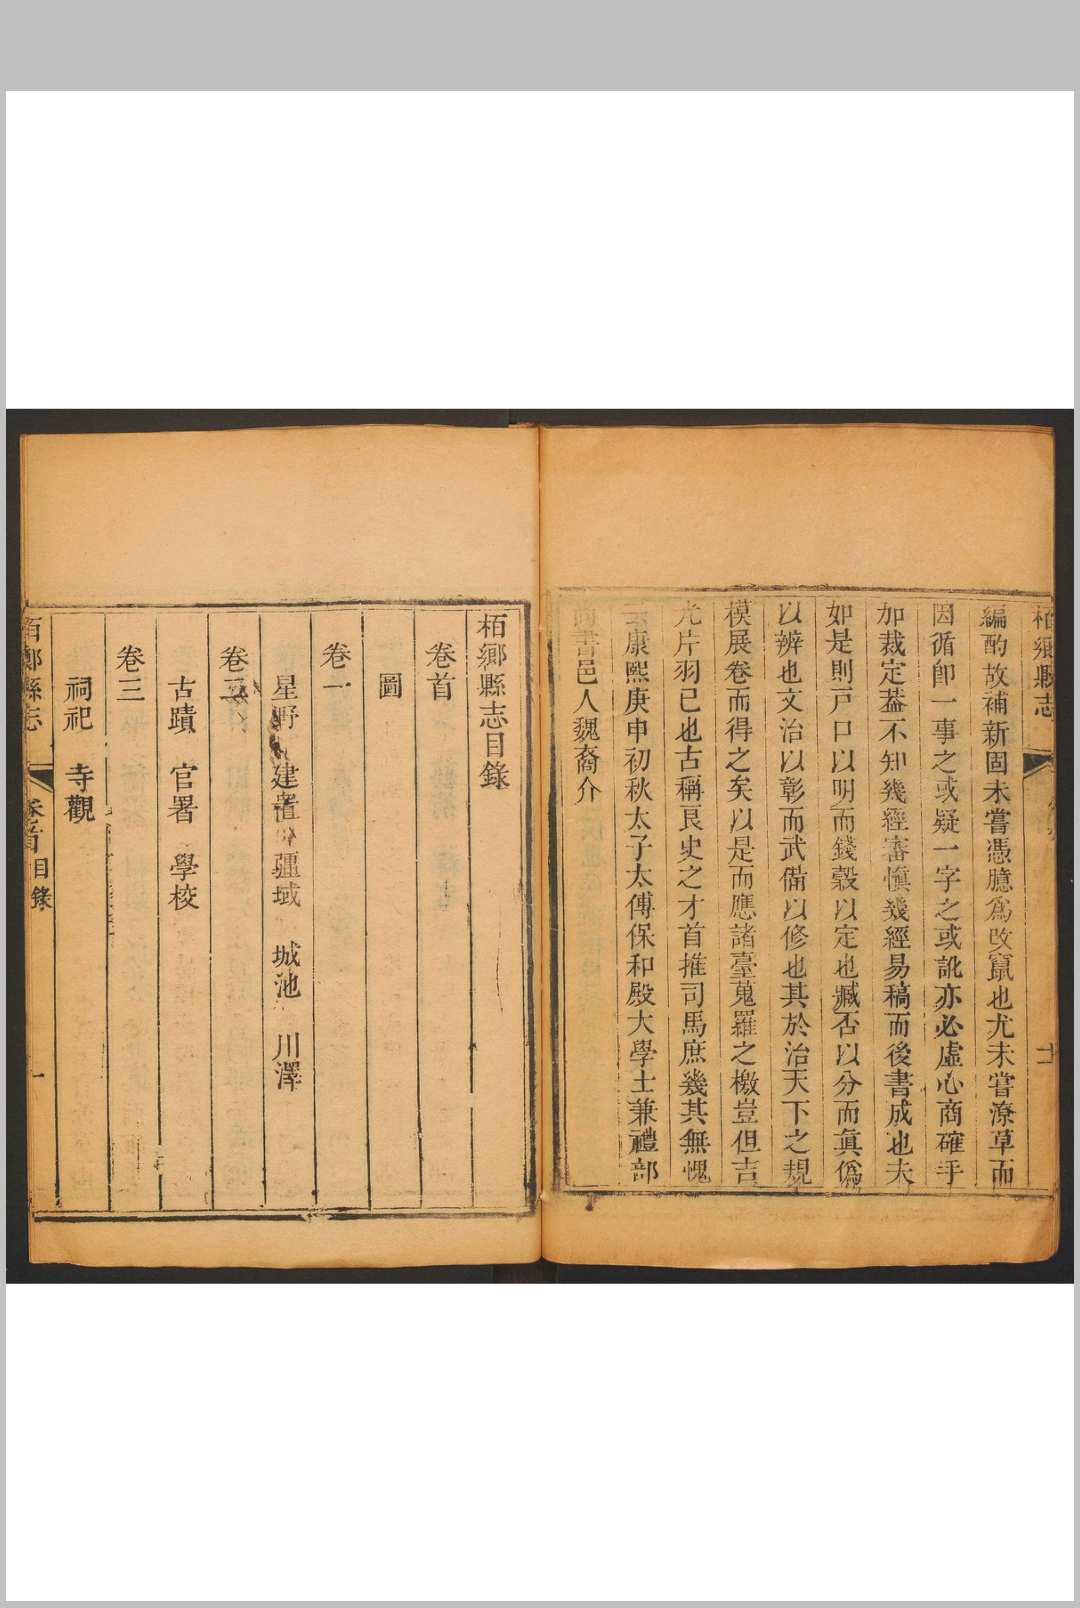 栢鄉縣志
十二
編酌故補新固未嘗憑臆爲改竄也尤未嘗潦草而
因循卽一事之或疑一字之或訛亦必虛心商確乎
加裁定葢不知幾經審愼幾經易稿而後書成也夫
如是則戸口以明而錢穀以定也臧否以分而眞僞
以辨也文治以彰而武備以修也其於治天下之規
模展卷而得之矣以是而應諸臺蒐羅之檄豈但吉
光片羽已也古稱良史之才首推司馬庶幾其無愧
云康熙庚申初秋太子太傅保和殿大學士兼禮部
尚書邑人魏裔介
栢鄉縣志目錄
卷首
圖
卷一
星野 建置 疆域 城池 川澤
卷二
古蹟 官署 學校
卷三
祠祀 寺觀
栢鄉縣志
卷首 目錄
一